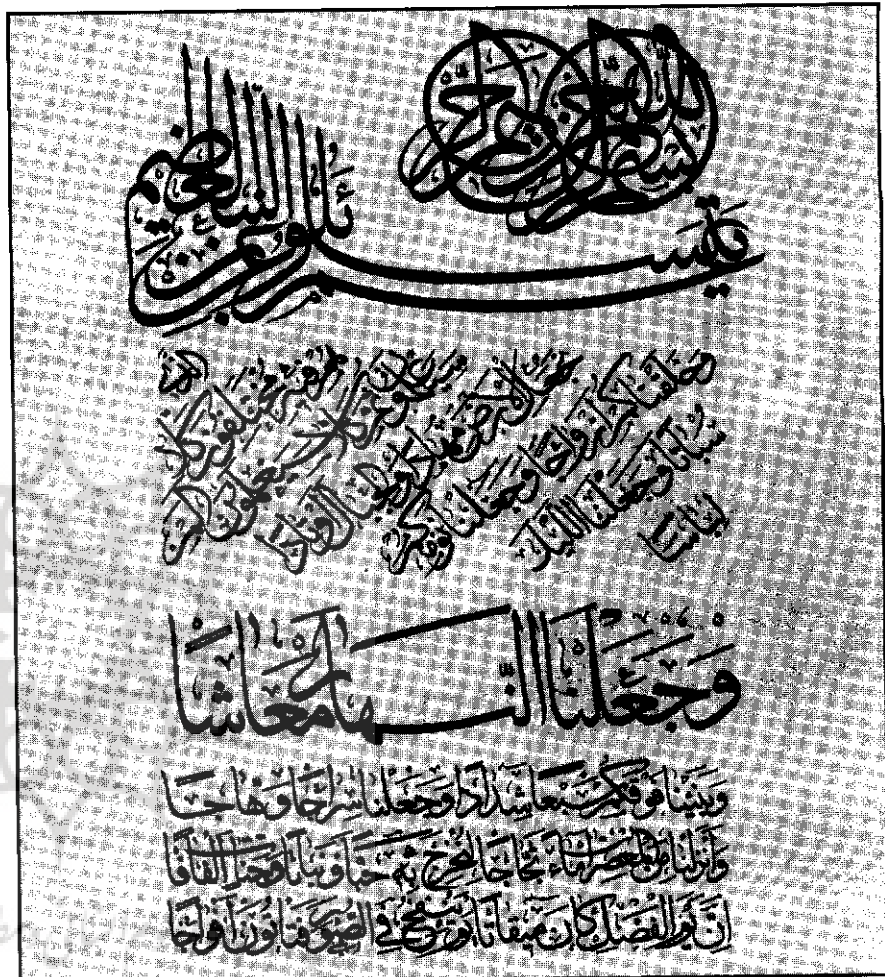 بسم الله الرحمن الرحيم
عم يتساءلون عن النبإ العظيم
الذي هم فيه مختلفون كلا
سيعلمون ثم كلا سيعلمون ألم
نجعل الأرض مهادا والجبال أوتادا
وخلقناكم أزواجا وجعلنا نومكم
سباتا وجعلنا الليل
لباسا
وَجَعَلْنَا النَّهَارَ مَعَاشًا
وبنينا فوقكم سبعا شدادا وجعلنا سراجا وهاجا
وأنزلنا من المعصرات ماء ثجاجا لنخرج به حبا ونباتا وجنات ألفافا
إن يوم الفصل كان ميقاتا يوم ينفخ في الصور فتأتون أفواجا